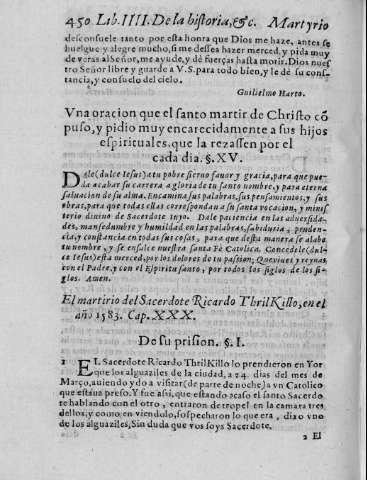 450 Lib. IIII. De la historia, &c. Martyrio
desconsuele tanto por esta honra que Dios me haze, antes se
huelgue y alegre mucho, si me dessea hazer merced, y pida muy
de veras al Señor, me ayude, y dé fuerças hasta morir. Dios nues
tro Señor libre y guarde a V.S. para todo bien, y le dé su cons-
tancia, y consuelo del cielo.
Guilielmo Harto.
Vna oracion que el santo martir de Christo cõ
puso, y pidio muy encarecidamente a sus hijos
espirituales, que la rezassen por el
cada dia. §. XV.
Dale (dulce Iesus) a tu pobre sieruo fauor y gracia, para que pue-
da acabar su carrera a gloria de tu santo nombre, y para eterna
saluacion de su alma. Encamina sus palabras, sus pensamientos, y sus
obras, para que todas ellas correspondan a su santa vocacion, y minis-
terio diuino de Sacerdote tuyo. Dale paciencia en las aduersida-
des, mansedumbre y humildad en las palabras, sabiduria, pruden-
cia, y constancia en todas sus cosas, para que desta manera se alabe
tu nombre, y se ensalce nuestra santa Fé Catolica. Concedele (dul
ce Iesus) esta merced, por los dolores de tu passion, Que viues y reynas
con el Padre, y con el Espiritu santo, por todos los siglos de los si-
glos. Amen.
El martirio del Sacerdote Ricardo ThrilKillo, en el
año 1583. Cap. XXX.
De su prision. §. I.
1 EL Sacerdote Ricardo ThrilKillo lo prendieron en Yor
que los alguaziles de la ciudad, a 24. dias del mes de
Março, auiendo ydo a visitar (de parte de noche) a vn Catolico
que estaua preso. Y fue assi, que estando acaso el santo Sacerdo
te hablando con el otro, entraron de tropel en la camara tres
dellos, y como en viendolo, sospecharon lo que era, dixo vno
de los alguaziles, Sin duda que vos soys Sacerdote.
2 El